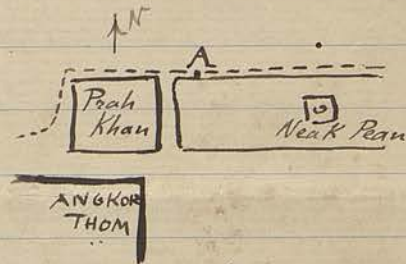 N
A
Prah
Khan
Neak Pean
ANGKOR
THOM